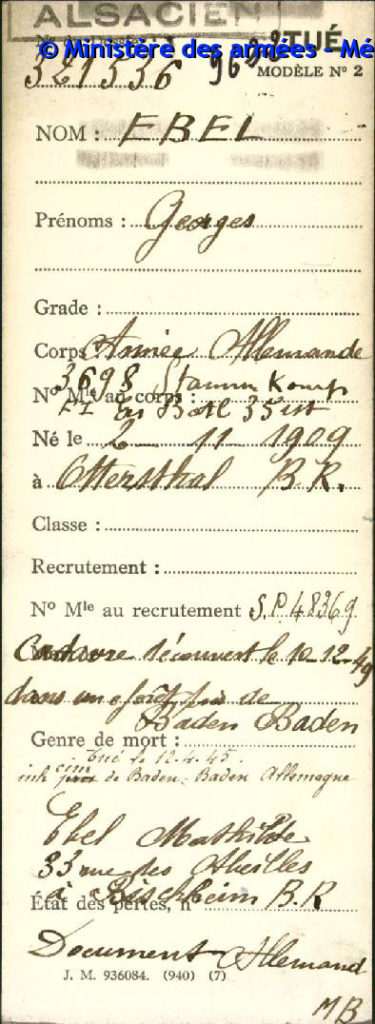 ALSACIEN
TUÉ
© Ministère des armées - Mé
321336 96
MODÈLE Nº 2
NOM : EBEL
Prénoms : Georges
Grade :
Corps Armée Allemande
3698 Stamm Komp
Nº Mle au corps :
Ers Batl 35 ist
Né le 2 11 1909
à Ottersthal B.R.
Classe :
Recrutement :
Nº Mle au recrutement : S.P. 48369
Cadavre découvert le 10-12-49
dans une forêt près de
Baden Baden
Genre de mort :
tué le 12.4.45.
cim
de Baden-Baden Allemagne
Ebel Mathilde
33 rue des Abeilles
à Bischheim B.R
État des pertes, nº
Document Allemand
J. M. 936084. (940) (7)
MB